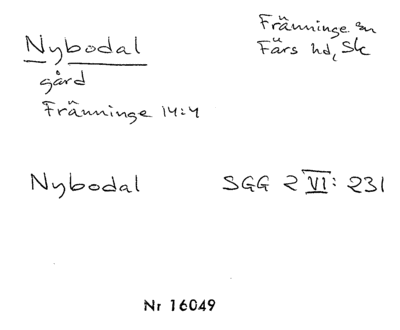 Nybodal
Fränninge sn
Färs hd, Sk
gård
Fränninge 14:4
Nybodal SGG 2 VI: 231
Nr 16049